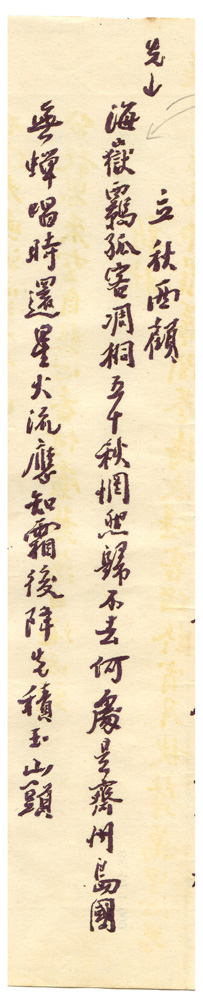 立秋西顧
先山
海嶽羈孤客凋桐五十秋惘然歸不去何處是齊州島國
無蟬唱時還星火流應知霜後降先積玉山頭